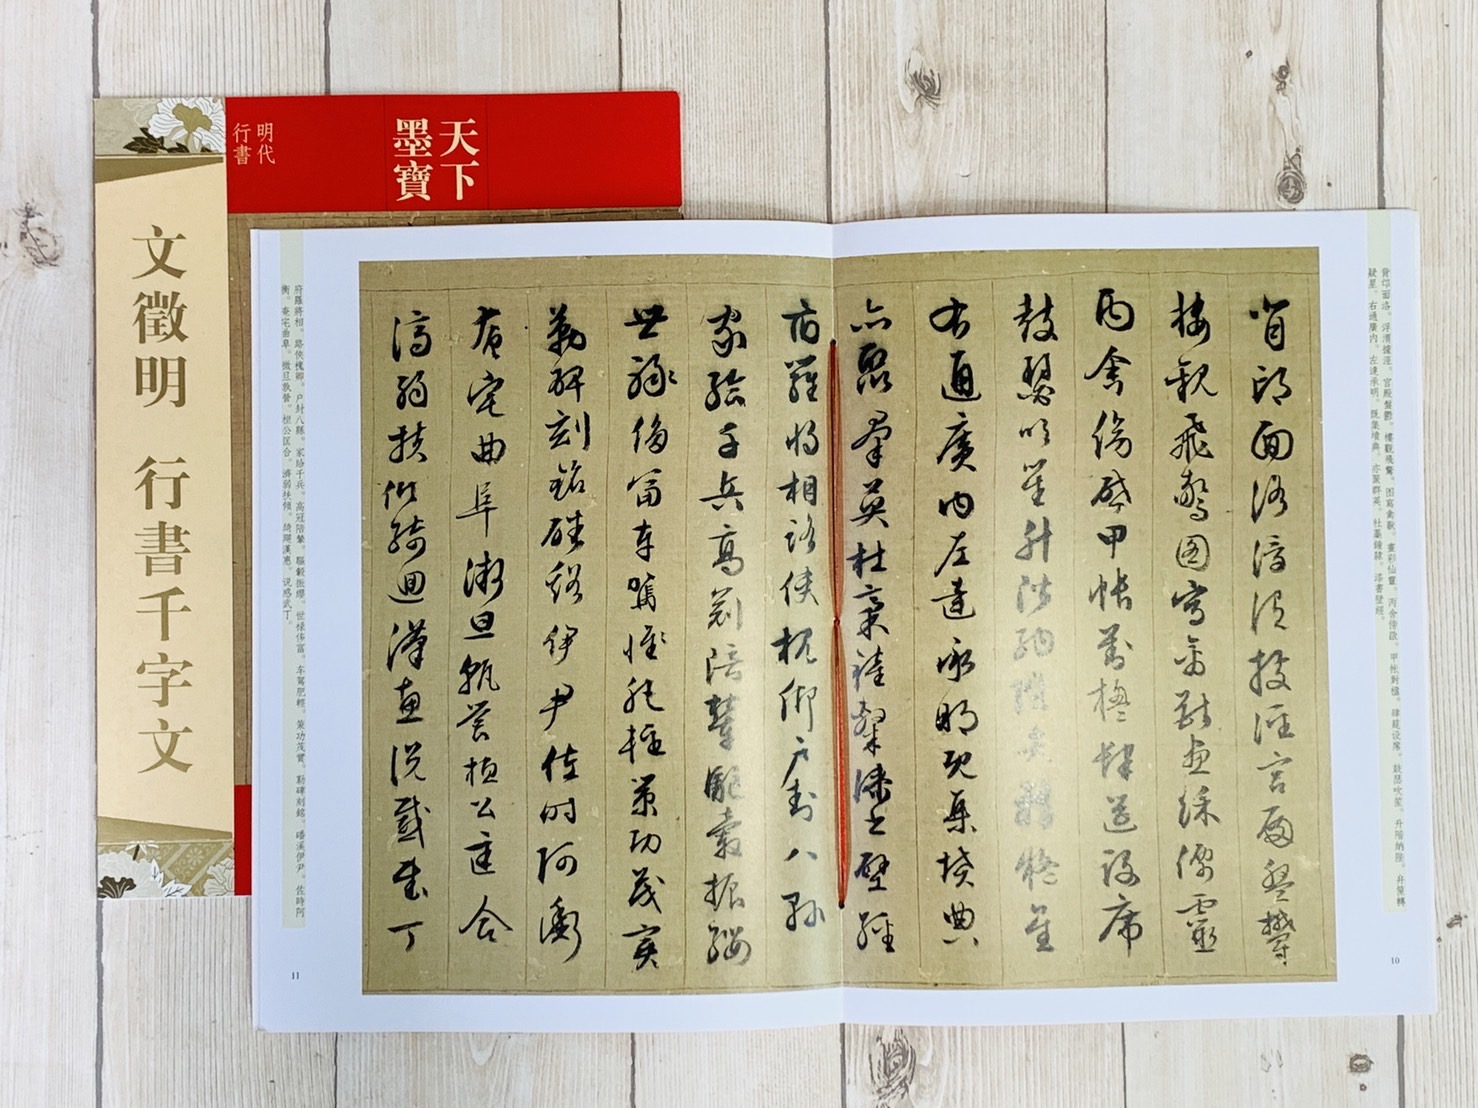 天下
墨寶
明代
行書
文徵明 行書千字文
背邙面洛。浮渭據涇。宮殿盤鬱。樓觀飛驚。图寫禽獸。畫彩仙靈。丙舍傍啟。甲帐對楹。肆筵设席。鼓瑟吹笙。升階納陛。弁轉
疑星。右通廣内。左達承明。既集墳典。亦聚群英。杜藁鍾隸。漆書壁經。
背邙面洛浮渭據涇宮殿盤鬱
樓觀飛驚圖寫禽獸畫綵僊靈
丙舍傍啟甲帳對楹肆筵設席
鼓瑟吹笙升階納陛弁轉疑星
右通廣内左達承明既集墳典
亦聚羣英杜稾鍾隸漆書壁經
10
府羅將相路俠槐卿戶封八縣
家給千兵高冠陪輦驅轂振纓
世祿侈富車駕肥輕策功茂實
勒碑刻銘磻溪伊尹佐時阿衡
奄宅曲阜微旦孰營桓公匡合
濟弱扶傾綺迴漢惠說感武丁
府羅將相。路俠槐卿。户封八縣。家给千兵。高冠陪輦。驅轂振纓。世禄侈富。车駕肥輕。策功茂實。勒碑刻銘。磻溪伊尹。佐時阿
衡。奄宅曲阜。微旦孰營。桓公匡合。濟弱扶傾。綺迴漢惠。说感武丁。
11